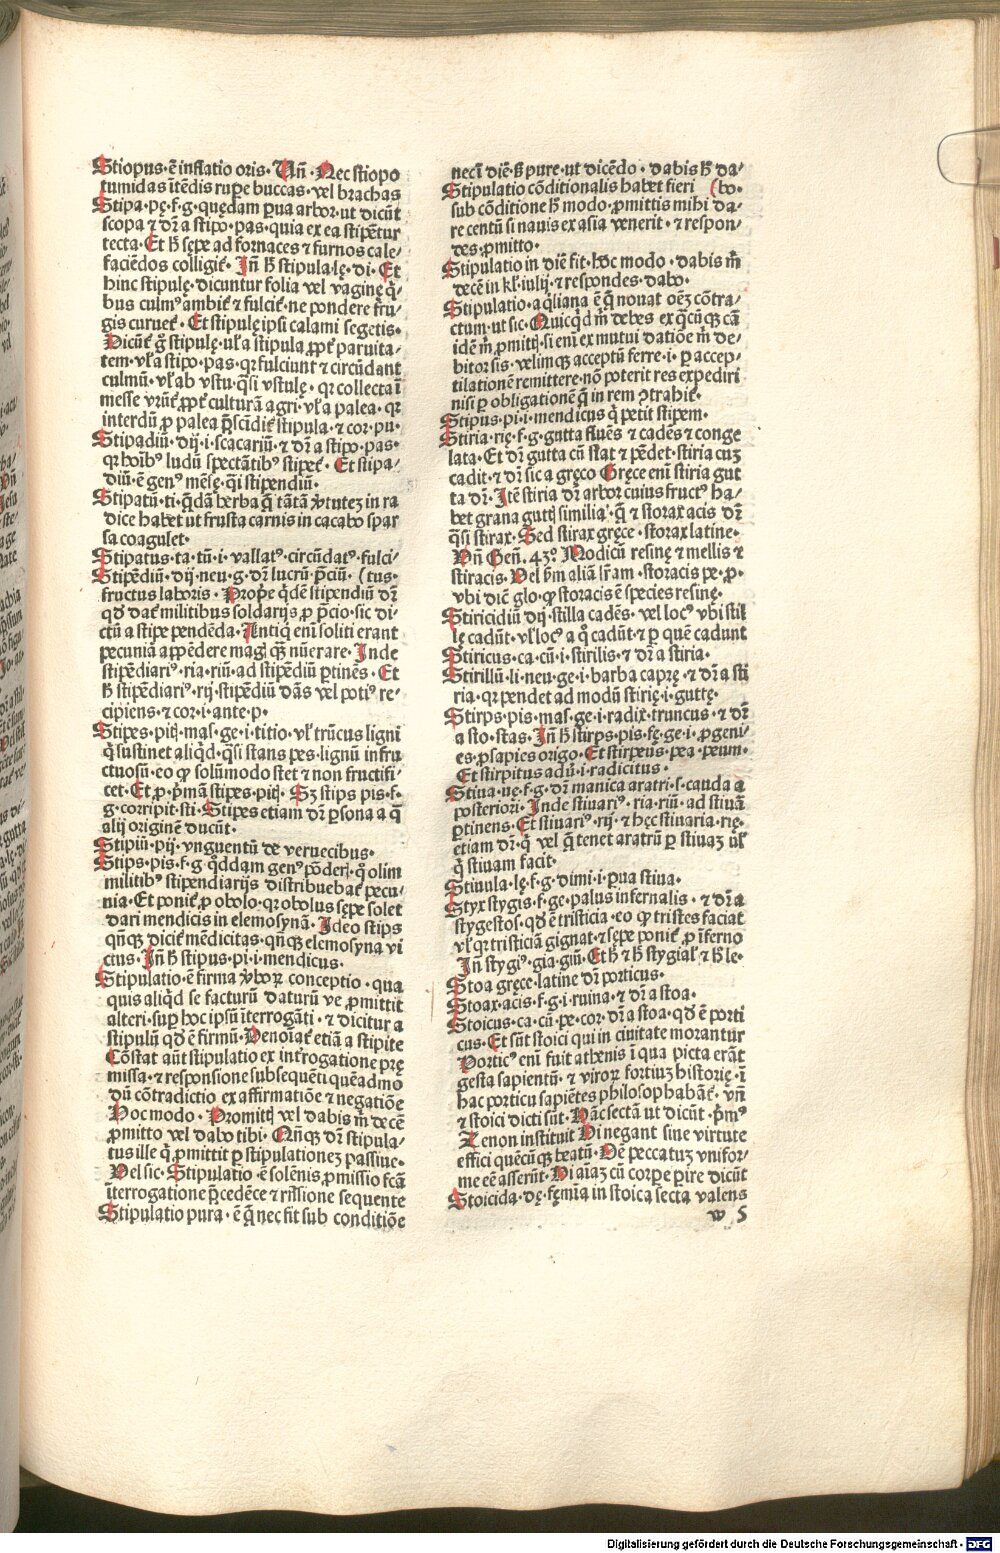 Stiopus·ē inflatio oris·Vn̄·Nec stiopo
tumidas ītēdis rupe buccas·vel brachas
Stipa·pę·f·g·quędam ꝑua arbor·ut dicūt
scopa ⁊ dr̄ a stipo·pas·quia ex ea stipētur
tecta·Et h̄ sępe ad fornaces ⁊ furnos cale-
faciēdos colligit᷑·In̄ h̄ stipula·lę·di·Et
hinc stipulę·dicuntur folia vel vaginę q̇-
bus culmꝰ ambit᷑ ⁊ fulcit᷑·ne pondere fru-
gis curuet᷑·Et stipulę ipsi calami segetis·
Dicūt᷑ g̊ stipulę·vl̓ a stipula ꝓpt᷑ paruita-
tem·vl̓ a stipo·pas·qr fulciunt ⁊ circūdant
culmū·vl̓ ab vstu·q̄si vstulę·qr collecta ī
messe vrūt᷑ ꝓpt᷑ culturā agri·vl̓ a palea·qr
interdū ꝓ palea p̄scidit᷑ stipula·⁊ cor·pu·
Stipadiū·dij·i·scacariū·⁊ dr̄ a stipo·pas·
qr hoībꝰ ludū spectātibꝰ stipet᷑·Et stipa-
diū·ē genꝰ mēsę·q̄si stipendiū·
Stipatū·ti·q̄dā herba q̄ tātā v̓tutez in ra
dice habet ut frusta carnis in cacabo spar
sa coagulet·
Stipatus·ta·tū·i·vallatꝰ·circūdatꝰ·fulci-
Stipēdiū·dij·neu·g·dr̄ lucrū·p̄ciū·(tus·
fructus laboris·Prop̄e q̇dē stipendiū dr̄
qd̓ dat᷑ militibus soldarijs ꝓ p̄cio·sic di-
ctū a stipe pendēda·Antiq̇ enī soliti erant
pecuniā appēdere magi qꝫ nūerare·Inde
stipēdiariꝰ·ria·riū·ad stipēdiū ꝑtinēs·Et
h̄ stipēdiariꝰ·rij·stipēdiū dās vel potiꝰ re-
cipiens·⁊ cor·i·ante·p·
Stipes·pitꝭ·mas·ge·i·titio·vl̓ trūcus ligni
q̇ sustinet aliqd·q̄si stans pes·lignū infru
ctuosū·eo ꝙ solūmodo stet ⁊ non fructifi-
cet·Et ꝓ·p̄mā stipes·pitꝭ·Sꝫ stips pis·f·
g·corripit·sti·Stipes etiam dr̄ ꝑsona a q̄
alij originē ducūt·
Stipiū·pij·vnguentū de veruecibus·
Stips·pis·f·g q̇ddam genꝰ pōderꝭ·q̊ olim
militibꝰ stipendiarijs distribuebat᷑ pecu-
nia·Et ponit᷑ ꝓ obolo·qr obolus sępe solet
dari mendicis in elemosynā·Ideo stips
qn̄qꝫ dicit᷑ mēdicitas·qn̄qꝫ elemosyna vi
ctus·In̄ h̄ stipus·pi·i·mendicus·
Stipulatio·ē firma v̓boꝝ conceptio·qua
quis aliqd se facturū daturū ve ꝓmittit
alteri·suꝑ hoc ipsū īterrogāti·⁊ dicitur a
stipulū qd̓ ē firmū·Denoīat᷑ etiā a stipite
Cōstat aūt stipulatio ex int̓rogatione prę
missa·⁊ responsione subsequēti quēadmo
dū cōtradictio ex affirmatiōe ⁊ negatiōe
Hoc modo·Promittꝭ vel dabis m̄ decē
ꝓmitto vel dabo tibi·Qn̄qꝫ dr̄ stipula-
tus ille q̇ ꝓmittit ꝑ stipulationez passiue·
Vel sic·Stipulatio·ē solēnis ꝓmissio fc̄a
īterrogatione p̄cedēce ⁊ rn̄sione sequente
Stipulatio pura·ē q̄ nec fit sub conditiōe
nec ī diē·sꝫ pure·ut dicēdo·dabis h̄ da-
Stipulatio cōditionalis habet fieri (bo·
sub cōditione h̄ modo·ꝓmittis mihi da-
re centū si nauis ex asia venerit·⁊ respon-
des·ꝓmitto·
Stipulatio in diē fit·hoc modo·dabis m̄
decē in kl̓·iulij·⁊ respondes·dabo·
Stipulatio·aq̇liana ē q̄ nouat oēꝫ cōtra-
ctum·ut sic·Quicqd m̄ debes ex q̄cūqꝫ cā
idē m̄ ꝓmittꝭ·si enī ex mutui datiōe m̄ de-
bitor sis·velimqꝫ acceptū ferre·i·ꝑ accep-
tilationē remittere·nō poterit res expediri
nisi ꝑ obligationē q̄ in rem ꝯtrahit᷑·
Stipus·pi·i·mendicus q̇ petit stipem·
Stiria·rię·f·g·gutta fluēs ⁊ cadēs ⁊ conge
lata·Et dr̄ gutta cū stat ⁊ pēdet·stiria cuꝫ
cadit·⁊ dr̄ sic a gręco Gręce enī stiria gut
ta dr̄·Itē stiria dr̄ arbor cuius fructꝰ ha-
bet grana guttꝭ similia·q̄ ⁊ storax acis dr̄
q̄si stirax·Sed stirax gręce·storax latine·
Vn̄ Gen̄·43º Modicū resinę ⁊ mellis ⁊
stiracis·Vel s̄m aliā lr̄am·storacis pe·ꝓ·
vbi diē glo·ꝙ storacis ē species resinę·
Stiricidiū dij·stilla cadēs·vel locꝰ vbi stil
lę cadūt·vl̓ locꝰ a q̊ cadūt·⁊ ꝑ quē cadunt
Stiricus·ca·cū·i·stirilis·⁊ dr̄ a stiria·
Stirillū·li·neu·ge·i·barba caprę·⁊ dr̄ a sti
ria·qr pendet ad modū stirię·i·guttę·
Stirps·pis·mas·ge·i·radix·truncus·⁊ dr̄
a sto·stas·In̄ h̄ stirps·pis·fę·ge·i·ꝓgeni-
es·ꝓsapies origo·Et stirpeus·pea·peum·
Et stirpitus aduꝫ·i·radicitus·
Stiua·uę·f·g·dr̄ manica aratri·s·cauda a
posteriori·Inde stiuariꝰ·ria·riū·ad stiuā
ꝑtinens·Et stiuariꝰ·rij·⁊ hęc stiuaria·rię·
etiam dr̄·q̇ vel q̄ tenet aratrū ꝑ stiuaꝫ vl̓
q̇ stiuam facit·
Stiuula·lę·f·g·dimi·i·ꝑua stiua·
Styx stygis·f·ge·palus infernalis·⁊ dr̄ a
stygestos·qd̓ ē tristicia·eo ꝙ tristes faciat
vl̓ qr tristiciā gignat·⁊ sępe ponit᷑ ꝓ īferno
In̄ stygiꝰ·gia·giū·Et h̄ ⁊ h̄ stygial̓ ⁊ h̄ le·
Stoa gręce·latine dr̄ porticus·
Stoax·acis·f·g·i·ruina·⁊ dr̄ a stoa·
Stoicus·ca·cū·pe·cor·dr̄ a stoa·qd̓ ē porti
cus·Et sūt stoici qui in ciuitate morantur
Porticꝰ enī fuit athenis ī qua picta erāt
gesta sapientū·⁊ viroꝝ fortiuꝫ historię·ī
hac porticu sapiētes philosophabāt᷑·vn̄
⁊ stoici dicti sūt·Hāc sectā ut dicūt·p̄mꝰ
Zenon instituit Hi negant sine virtute
effici quēcūqꝫ beatū·Oē peccatuꝫ vnifor-
me eē asserūt·Hi aīaꝫ cū corꝑe ꝑire dicūt
Stoicida·dę·fęmīa in stoica secta valens
w 5
Digitalisierung gefördert durch die Deutsche Forschungsgemeinschaft - DFG